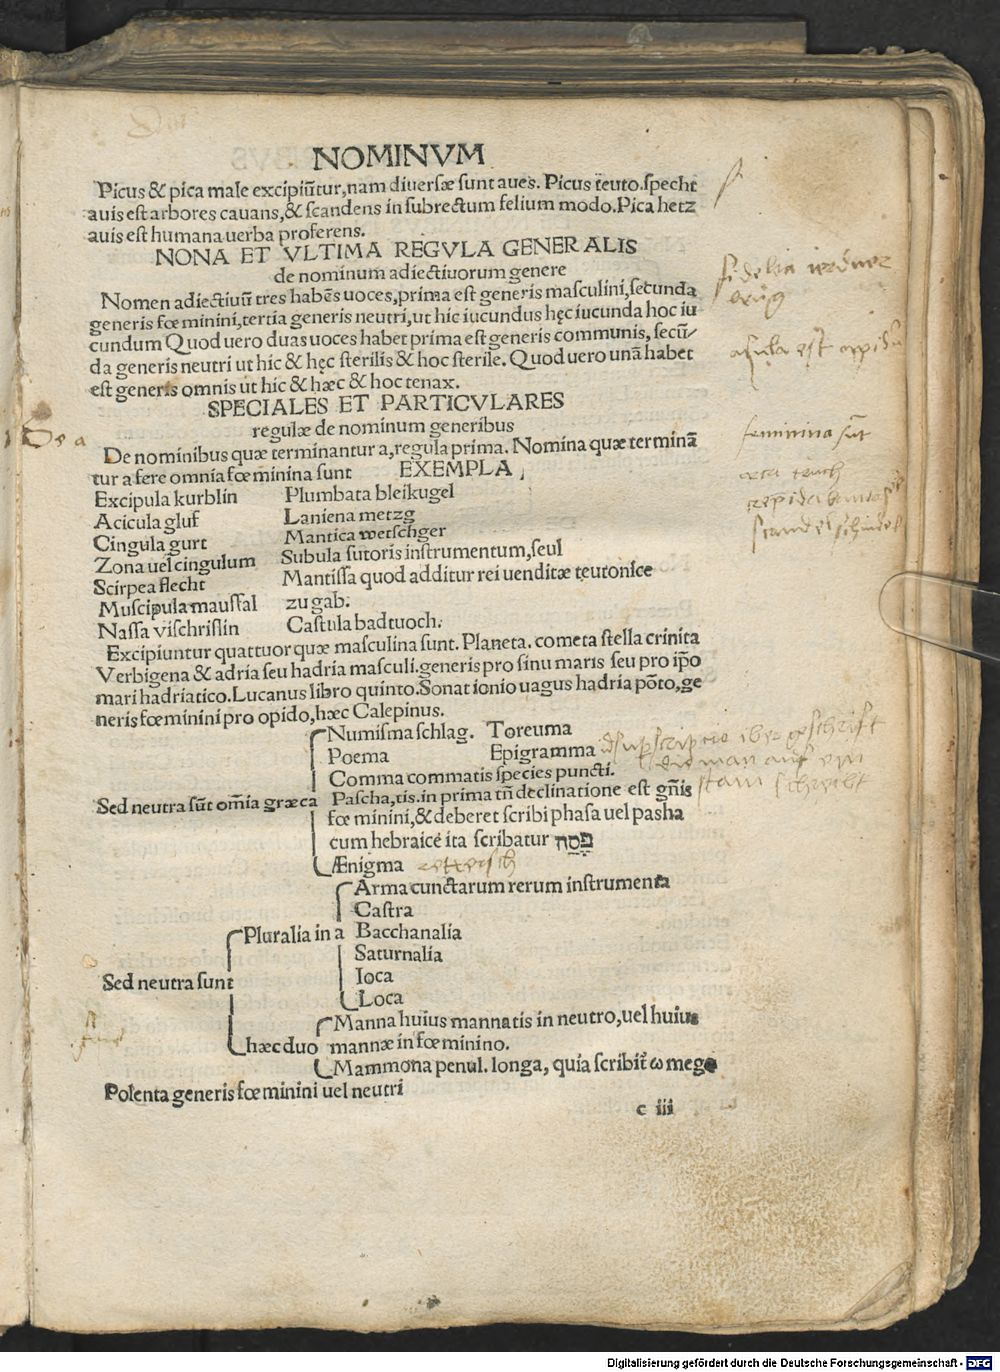 NOMINVM
Picus & pica male excipiūtur, nam diuersæ sunt aues. Picus teuto. specht
auis est arbores cauans, & scandens in subrectum felium modo. Pica hetz
auis est humana uerba proferens.
NONA ET VLTIMA REGVLA GENERALIS
de nominum adiectiuorum genere
Nomen adiectiuū tres habēs uoces, prima est generis masculini, secunda
generis fœminini, tertia generis neutri, ut hic iucundus hęc iucunda hoc iu
cundum Quod uero duas uoces habet prima est generis communis, secū-
da generis neutri ut hic & hęc sterilis & hoc sterile. Quod uero unā habet
est generis omnis ut hic & hæc & hoc tenax.
SPECIALES ET PARTICVLARES
De a
regulæ de nominum generibus
De nominibus quæ terminantur a, regula prima. Nomina quæ terminā
tur a fere omnia fœminina sunt EXEMPLA
Excipula kurblin Plumbata bleikugel
Acicula gluf Laniena metzg
Cingula gurt Mantica wetschger
Zona uel cingulum Subula sutoris instrumentum, seul
Scirpea flecht Mantissa quod additur rei uenditæ teutonice
Muscipula mausfal zu gab.
Nassa vischrislin Castula badtuoch.
Excipiuntur quattuor quæ masculina sunt. Planeta. cometa stella crinita
Verbigena & adria seu hadria masculi. generis pro sinu maris seu pro ip̄o
mari hadriatico. Lucanus libro quinto. Sonat ionio uagus hadria pōto, ge
neris fœminini pro opido, hæc Calepinus.
Numisma schlag. Toreuma
Poema Epigramma
Comma commatis species puncti.
Sed neutra sūt om̄ia græca Pascha, tis. in prima tn̄ declinatione est gn̄is
fœminini, & deberet scribi phasa uel pasha
cum hebraice ita scribatur פֶּסַח
Ænigma retersch
Arma cunctarum rerum instrumenta
Castra
Pluralia in a Bacchanalia
Saturnalia
Sed neutra sunt Ioca
Loca
Manna huius mannatis in neutro, uel huius
hæc duo mannæ in fœminino.
Mammona penul. longa, quia scribit̄ ω mego
Polenta generis fœminini uel neutri
c iii
feminina sūt
Digitalisierung gefördert durch die Deutsche Forschungsgemeinschaft - DFG